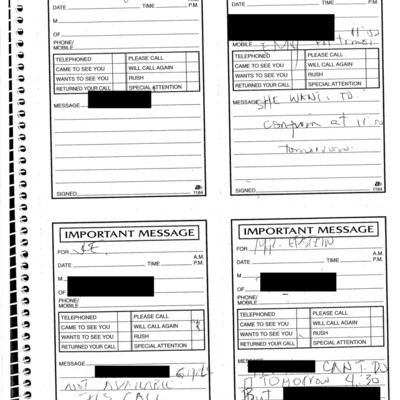 DATE TIME P.M.
M
OF
PHONE/
MOBILE
TELEPHONED PLEASE CALL
CAME TO SEE YOU WILL CALL AGAIN
WANTS TO SEE YOU RUSH
RETURNED YOUR CALL SPECIAL ATTENTION
MESSAGE
SIGNED
1184
DATE TIME P.M.
11:02
MOBILE
TELEPHONED PLEASE CALL
CAME TO SEE YOU WILL CALL AGAIN
WANTS TO SEE YOU RUSH
RETURNED YOUR CALL SPECIAL ATTENTION
MESSAGE SHE WANTS TO
confirm at 11:00
tomorrow
SIGNED
1184
IMPORTANT MESSAGE
FOR J.E.
A.M.
DATE TIME P.M.
M
OF
PHONE/
MOBILE
TELEPHONED PLEASE CALL
CAME TO SEE YOU WILL CALL AGAIN
WANTS TO SEE YOU RUSH
RETURNED YOUR CALL SPECIAL ATTENTION
MESSAGE
NOT AVAILABLE
CALL
IMPORTANT MESSAGE
FOR Mr. EPSTEIN
A.M.
DATE TIME P.M.
M
OF
PHONE/
MOBILE
TELEPHONED PLEASE CALL
CAME TO SEE YOU WILL CALL AGAIN
WANTS TO SEE YOU RUSH
RETURNED YOUR CALL SPECIAL ATTENTION
MESSAGE
CAN'T DO
TOMORROW 4:30
But